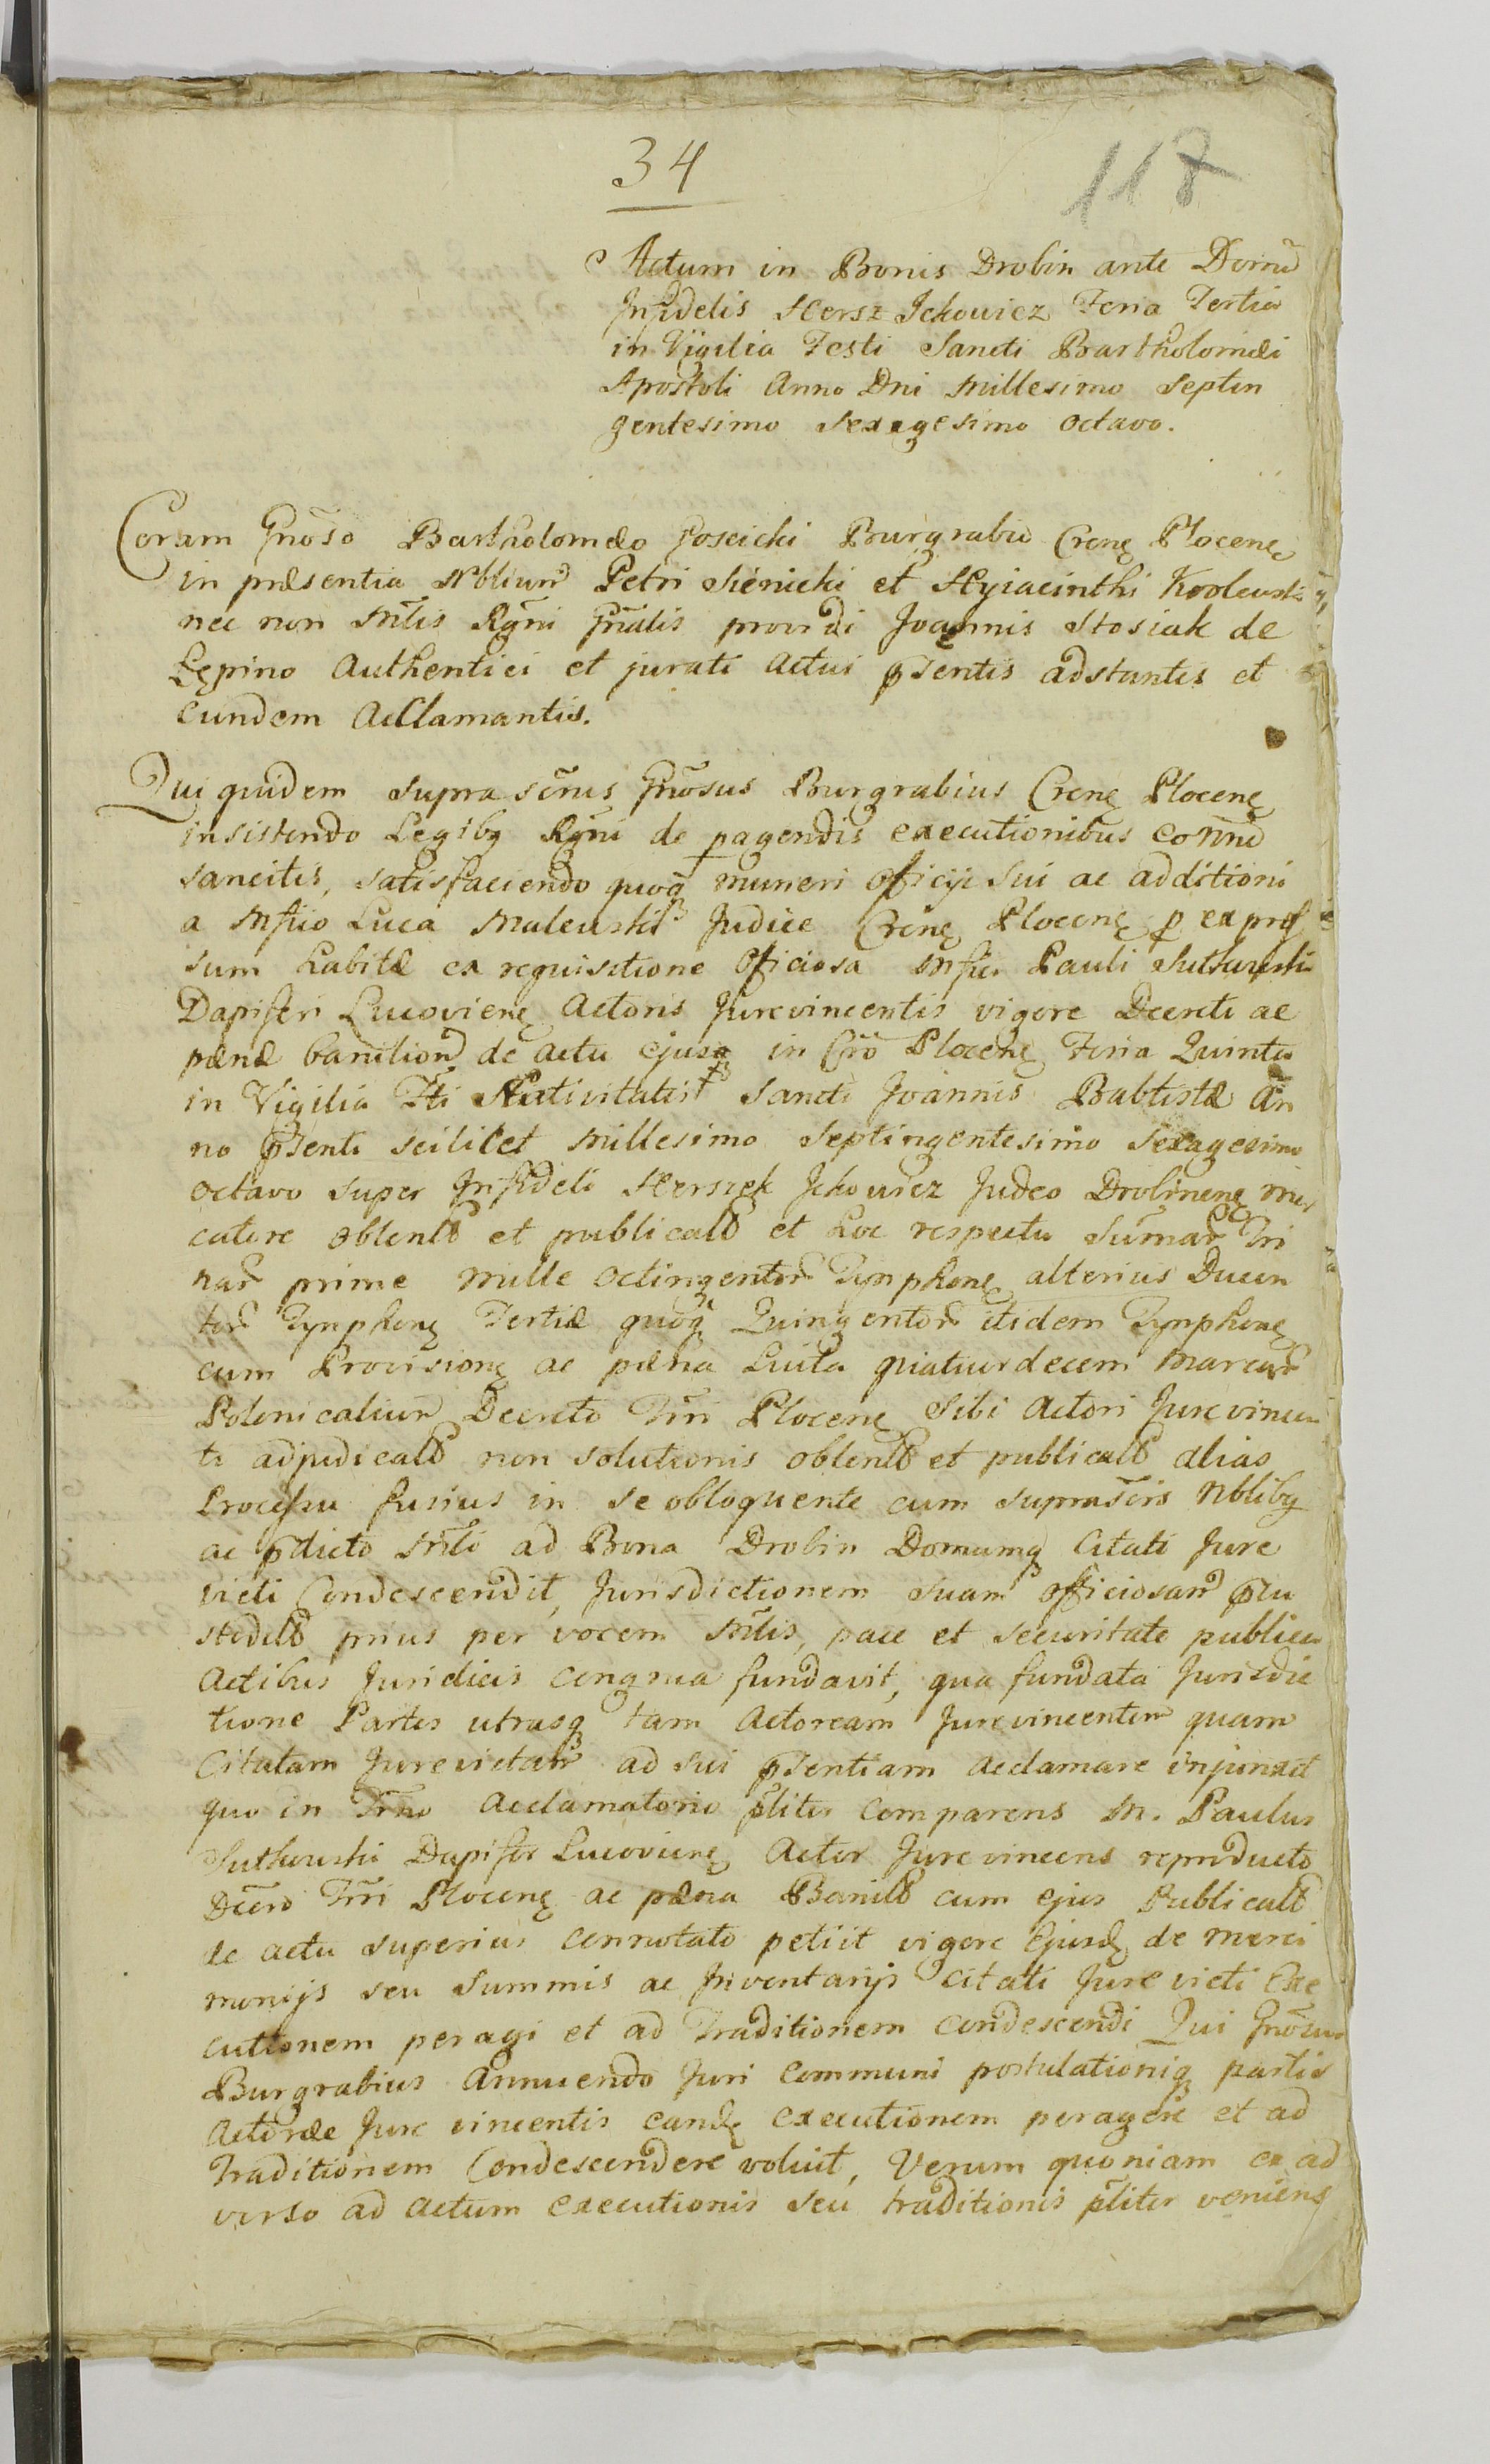 34
118
Actum in Bonis Drobin ante Domũ
Infidelis Hersz Ickowicz Feria Tertia
in Vigilia Festi Sancti Bartholomæi
Apostoli Anno Dni Millesimo Septin
gentesimo Sexagesimo Octavo.
Coram Gnõso Bartholomæo Burgrabio Crenę Plocenę
in præsentia Nbliũm Petri Sienicki et Hyiacinthi
nec non Mñlis Rgni Gñalis providi Joannis Stosiak de
Lępino Authentici et jurati Actui pñsentis adstantis et
eundem Acclamantis.
Qui quidem supra scr̃ius Gnõsus Burgrabius Crenę Plocenę
insistendo Legibq Rgni de pagendis executionibus
sancitis, satisfaciendo quoq muneri Officji sui ac additioni
a Mfico Luca Malewski Judice Crenę Plocenę p expres
sum habitæ ex requisitione Officiosa Mfici Pauli
Dapiferi Lucovienę Actoris Jurevincentis vigore Decreti ac
pænæ banition̄ de actu ejusq in Crõ Plocenę Feria Quinta
in Vigilia Fti Nativitatis Sancti Joannis Babtistæ An
no pñsenti scilicet Millesimo Septingentesimo Sexagesimo
Octavo super Infideli Herszek Ickowicz Judeo Drobinenę mer
catore obtentæ et publicatæ et hoc respectu Sum̃ar Tri
nar prime Mille Octingentor Tynphonę alterius Ducen
tor Tynphonę Tertiæ quoq Quingentor itidem Tynphonę
cum Provisionę ac pæna Luita quatuordecem Marcar
Polonicaliũm Decreto Tr̃ni Plocenę Sibi Actori Jurevincen
ti adjudicatæ non solutionis obtentæ et publicatæ alias
Processu fusius in se obloquente cum suprascr̃is Nblibq
ac pdicto Mñli ad Bona Drobin Domumq Citati Jure
victi Condescendit, Jurisdictionem suam officiosam
prius per vocem Mñlis, pace et securitate publica
Actibus Juridicis congrua fundavit, qua fundata Jurisdic
tione Partes utrasq tam Actoream Jurevincentem quam
Citatam Jurevictam ad sui pñsentiam acclamare injunxit
quo in Tr̃no Acclamatorio pliter comparens M. Paulus
Dapifer Lucovienę Actor Jurevincens reproducto
Dcẽto Tr̃ni Plocenę ac pæna Banitæ cum ejus Publicatæ
de actu superius connotato petiit vigore Ejusdę de Merci
monijs seu Summis ac Inventarijs Citati Jurevicti Exe
cutionem peragi et ad Traditionem condescendi Qui Gnõsus
Burgrabius Annuendo Juri Communi postulationiq partis
Actoreæ Jure vincentis eandę Executionem peragere et ad
Traditionem Condescendere voluit, Verum quoniam ex ad
verso ad actum executionis seu traditionis pliter veniens